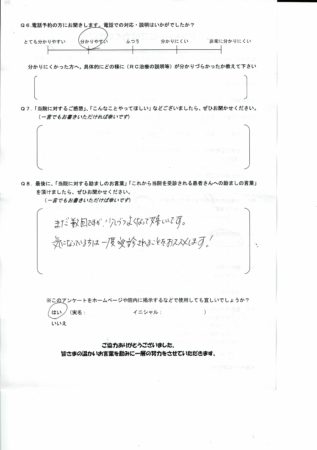 Q6.電話予約の方にお聞きします。電話での対応・説明はいかがでしたか？
とても分かりやすい 分かりやすい ふつう 分かりにくい 非常に分かりにくい
分かりにくかった方へ、具体的にどの様に（RC治療の説明等）が分かりづらかったか教えて下さい
Q7.「当院に対するご感想」、「こんなことやってほしい」などございましたら、ぜひお聞かせください。
（一言でもお書きいただければ幸いです）
Q8.最後に、「当院に対する励ましのお言葉」「これから当院を受診される患者さんへの励ましの言葉」
を頂けましたら、ぜひお聞かせください。
（一言でもお書きいただければ幸いです）
まだ数回ですが、少しづつよくなって嬉しいです。
気になっている方は一度受診されることをおススメします!
※このアンケートをホームページや院内に掲示するなどで使用しても宜しいでしょうか？
はい （実名： イニシャル： ）
いいえ
ご協力ありがとうございました。
皆さまの温かいお言葉を励みに一層の努力をさせていただきます。